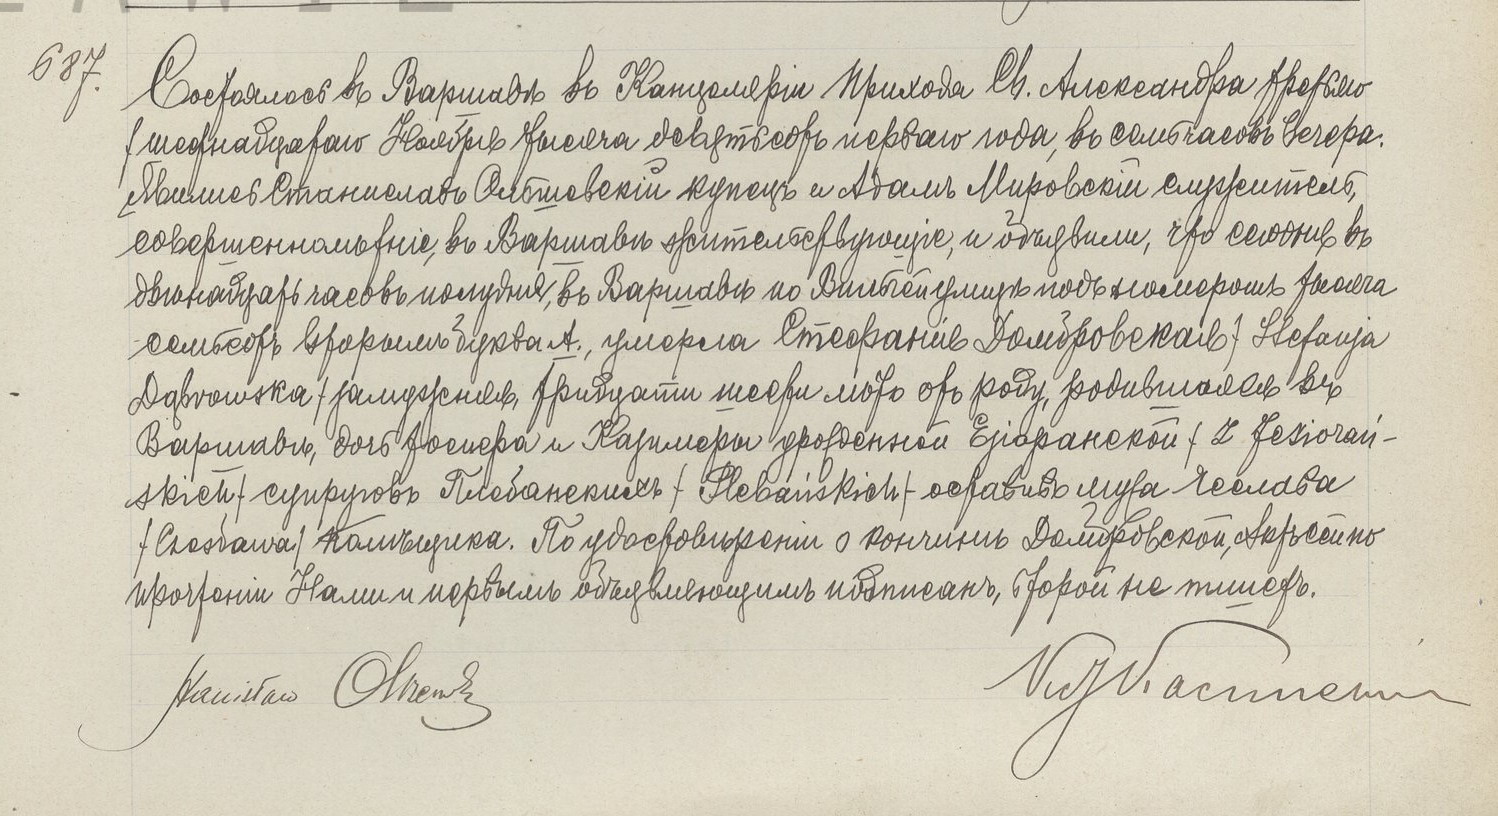 687.
Состоялось въ Варшавѣ въ Канцеляріи Прихода Св. Александра третьяго
/шестнадцатаго/ Ноября тысяча девятьсотъ перваго года, въ семь часовъ вечера.
Явились Станиславъ Ольшевскій купецъ и Адамъ Мировскій служитель,
совершеннолѣтніе, въ Варшавѣ жительствующіе, и объявили, что сегодня въ
двѣнадцать часовъ полудня, въ Варшавѣ по улицѣ подъ номеромъ тысяча
семьсотъ вторымъ буква А., умерла Стефанія Домбровская / Stefanja
Dąbrowska / замужняя, тридцати шести лѣтъ отъ роду, родившаяся въ
Варшавѣ, дочь Іосифа и Казимеры урожденной Езіоранской / z Jeziorań-
skich / супруговъ Плебанскихъ / Plebańskich / оставивъ мужа Чеслава
/ Czesława / . По удостовѣреніи о кончинѣ Домбровской, Актъ сей по
прочтеніи Нами и первымъ объявляющимъ подписанъ, второй не пишетъ.
Stanisław